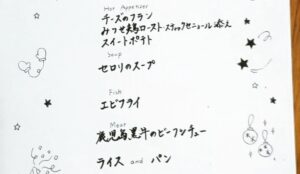 Hot Appetizer
チーズのフラン
みつせ鶏ロースト・スティックセニョール添え
スイートポテト
Soup
セロリのスープ
Fish
エビフライ
Meat
鹿児島黒牛のビーフシチュー
ライス and パン